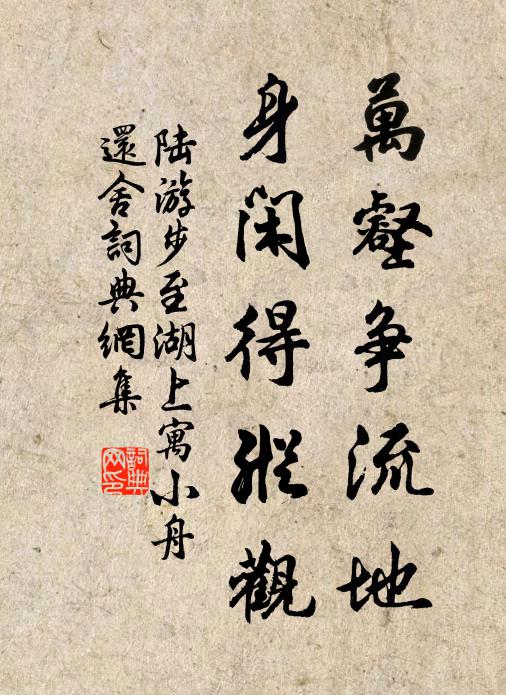 萬壑争流地
身閑得縱觀
陸游步至湖上寓小舟
還舍詞典網集
詞典
网印